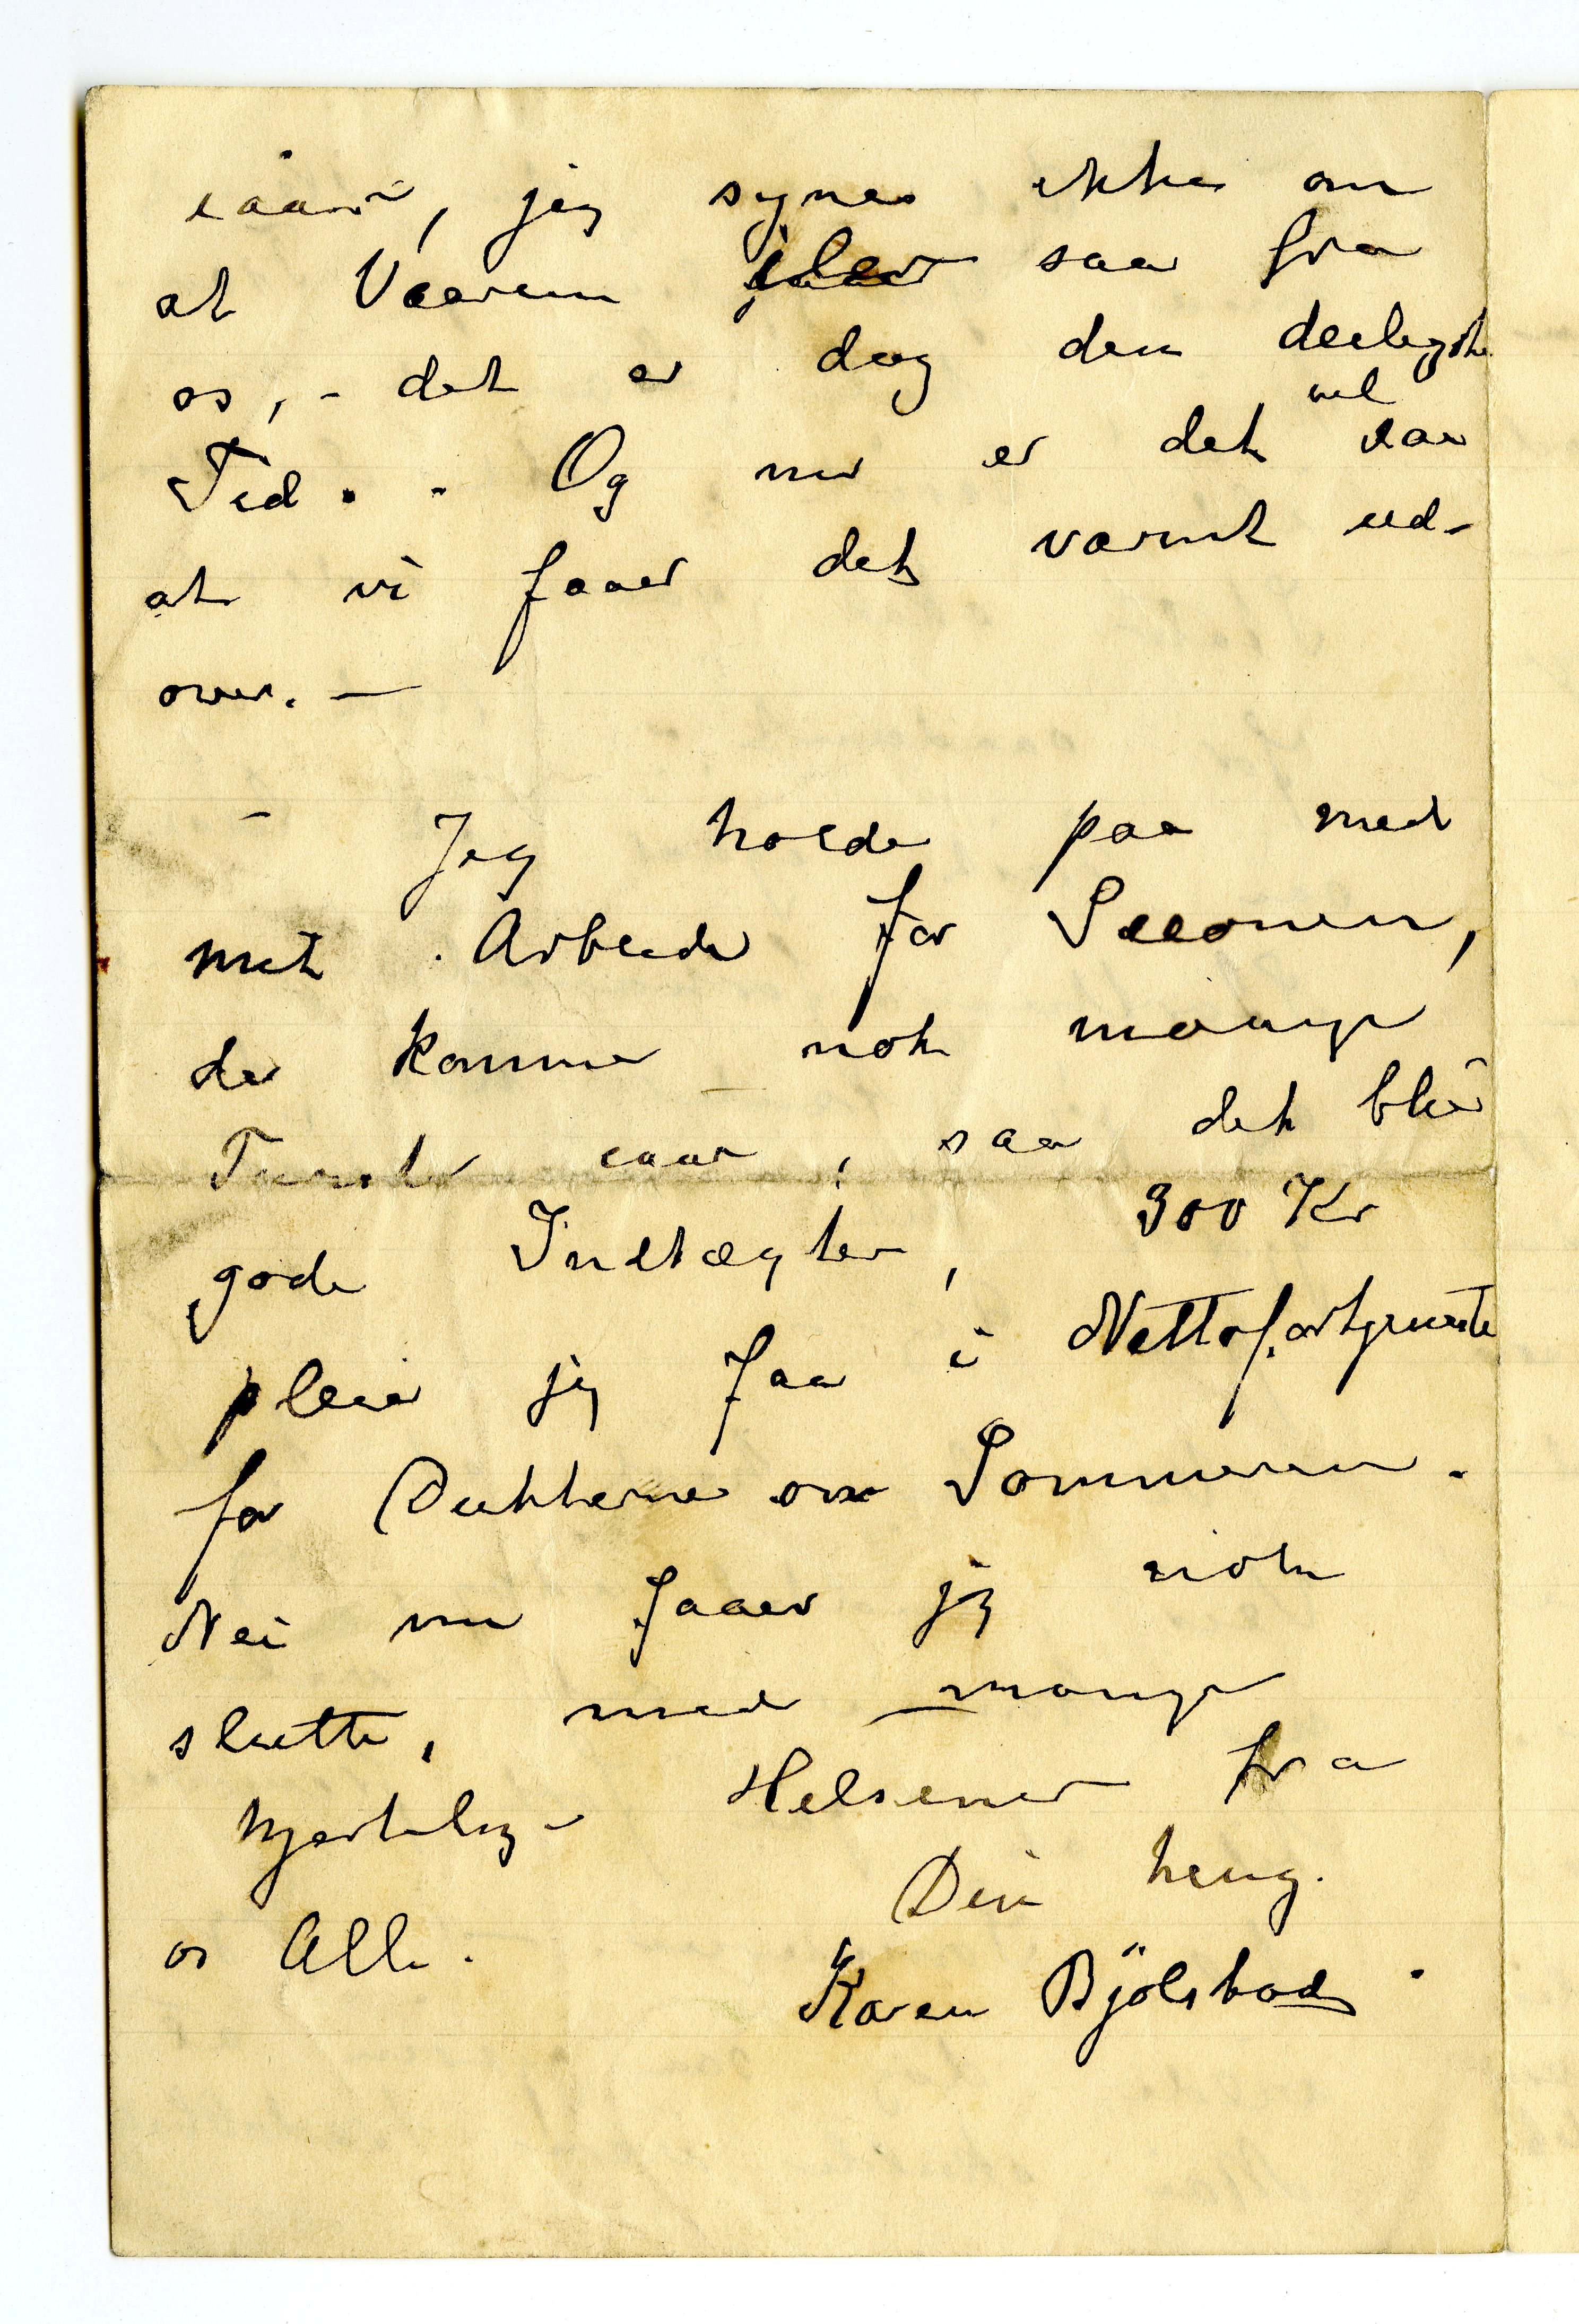 iaar, jeg synes ikke om
at Vaaren iler saa fra
os, - det er dog den deiligste
Tid. - Og nu er det vel saa
at vi faaer det varmt ud-
over. —
- Jeg holder paa med
mit Arbeide for Seeonen,
der kommer nok mange
Turister iaar, saa det blir
gode Indtægter, 300 Kr
pleier jeg faa i Nettofortjeneste
for Dukkerne om Sommeren.
Nei nu faaer jeg nok
slutte, med mange
hjertelige Helsener fra
Din heng.
os Alle.
Karen Bjölstad.